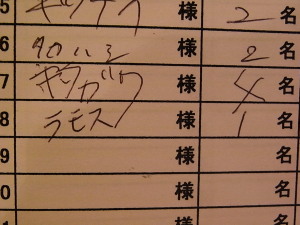 5 キクチ 様 2 名
6 タロハシ 様 2 名
7 様 4 名
8 ラモス 様 1 名
9 様 名
0 様 名
様 名